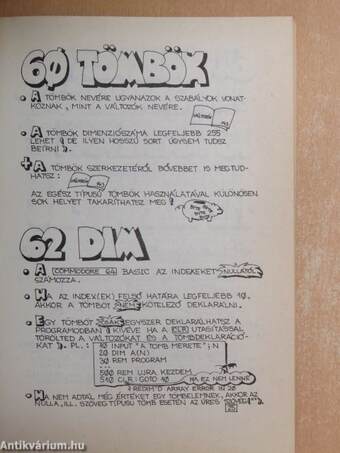 60 TÖMBÖK
A TÖMBÖK NEVÉRE UGYANAZOK A SZABÁLYOK VONAT-
KOZNAK, MINT A VÁLTOZÓK NEVÉRE.
A TÖMBÖK DIMENZIÓSZÁMA LEGFELJEBB 255
LEHET (DE ILYEN HOSSZÚ SORT ÚGYSEM TUDSZ
BEÍRNI).
A TÖMBÖK SZERKEZETÉRŐL BŐVEBBET IS MEGTUD-
HATSZ:
AZ EGÉSZ TÍPUSÚ TÖMBÖK HASZNÁLATÁVAL KÜLÖNÖSEN
SOK HELYET TAKARÍTHATSZ MEG!
62 DIM
A COMMODORE 64 BASIC AZ INDEXEKET NULLÁTÓL
SZÁMOZZA.
HA AZ INDEX(EK) FELSŐ HATÁRA LEGFELJEBB 10,
AKKOR A TÖMBÖT NEM KÖTELEZŐ DEKLARÁLNI.
EGY TÖMBÖT CSAK EGYSZER DEKLARÁLHATSZ A
PROGRAMODBAN (KIVÉVE HA A CLR UTASÍTÁSSAL
TÖRÖLTED A VÁLTOZÓKAT ÉS A TÖMBDEKLARÁCIÓ-
KAT). PL.:
10 INPUT "A TÖMB MÉRETE"; N
20 DIM A(N)
30 REM PROGRAM
500 REM ÚJRA KEZDEM
510 CLR: GOTO 10
HA EZ NEM LENNE
? REDIM'D ARRAY ERROR IN 20
HA NEM ADTÁL MÉG ÉRTÉKET EGY TÖMBELEMNEK, AKKOR AZ
NULLA, ILL. SZÖVEG TÍPUSÚ TÖMB ESETÉN AZ ÜRES SZÖVEG
Antikvárium.hu